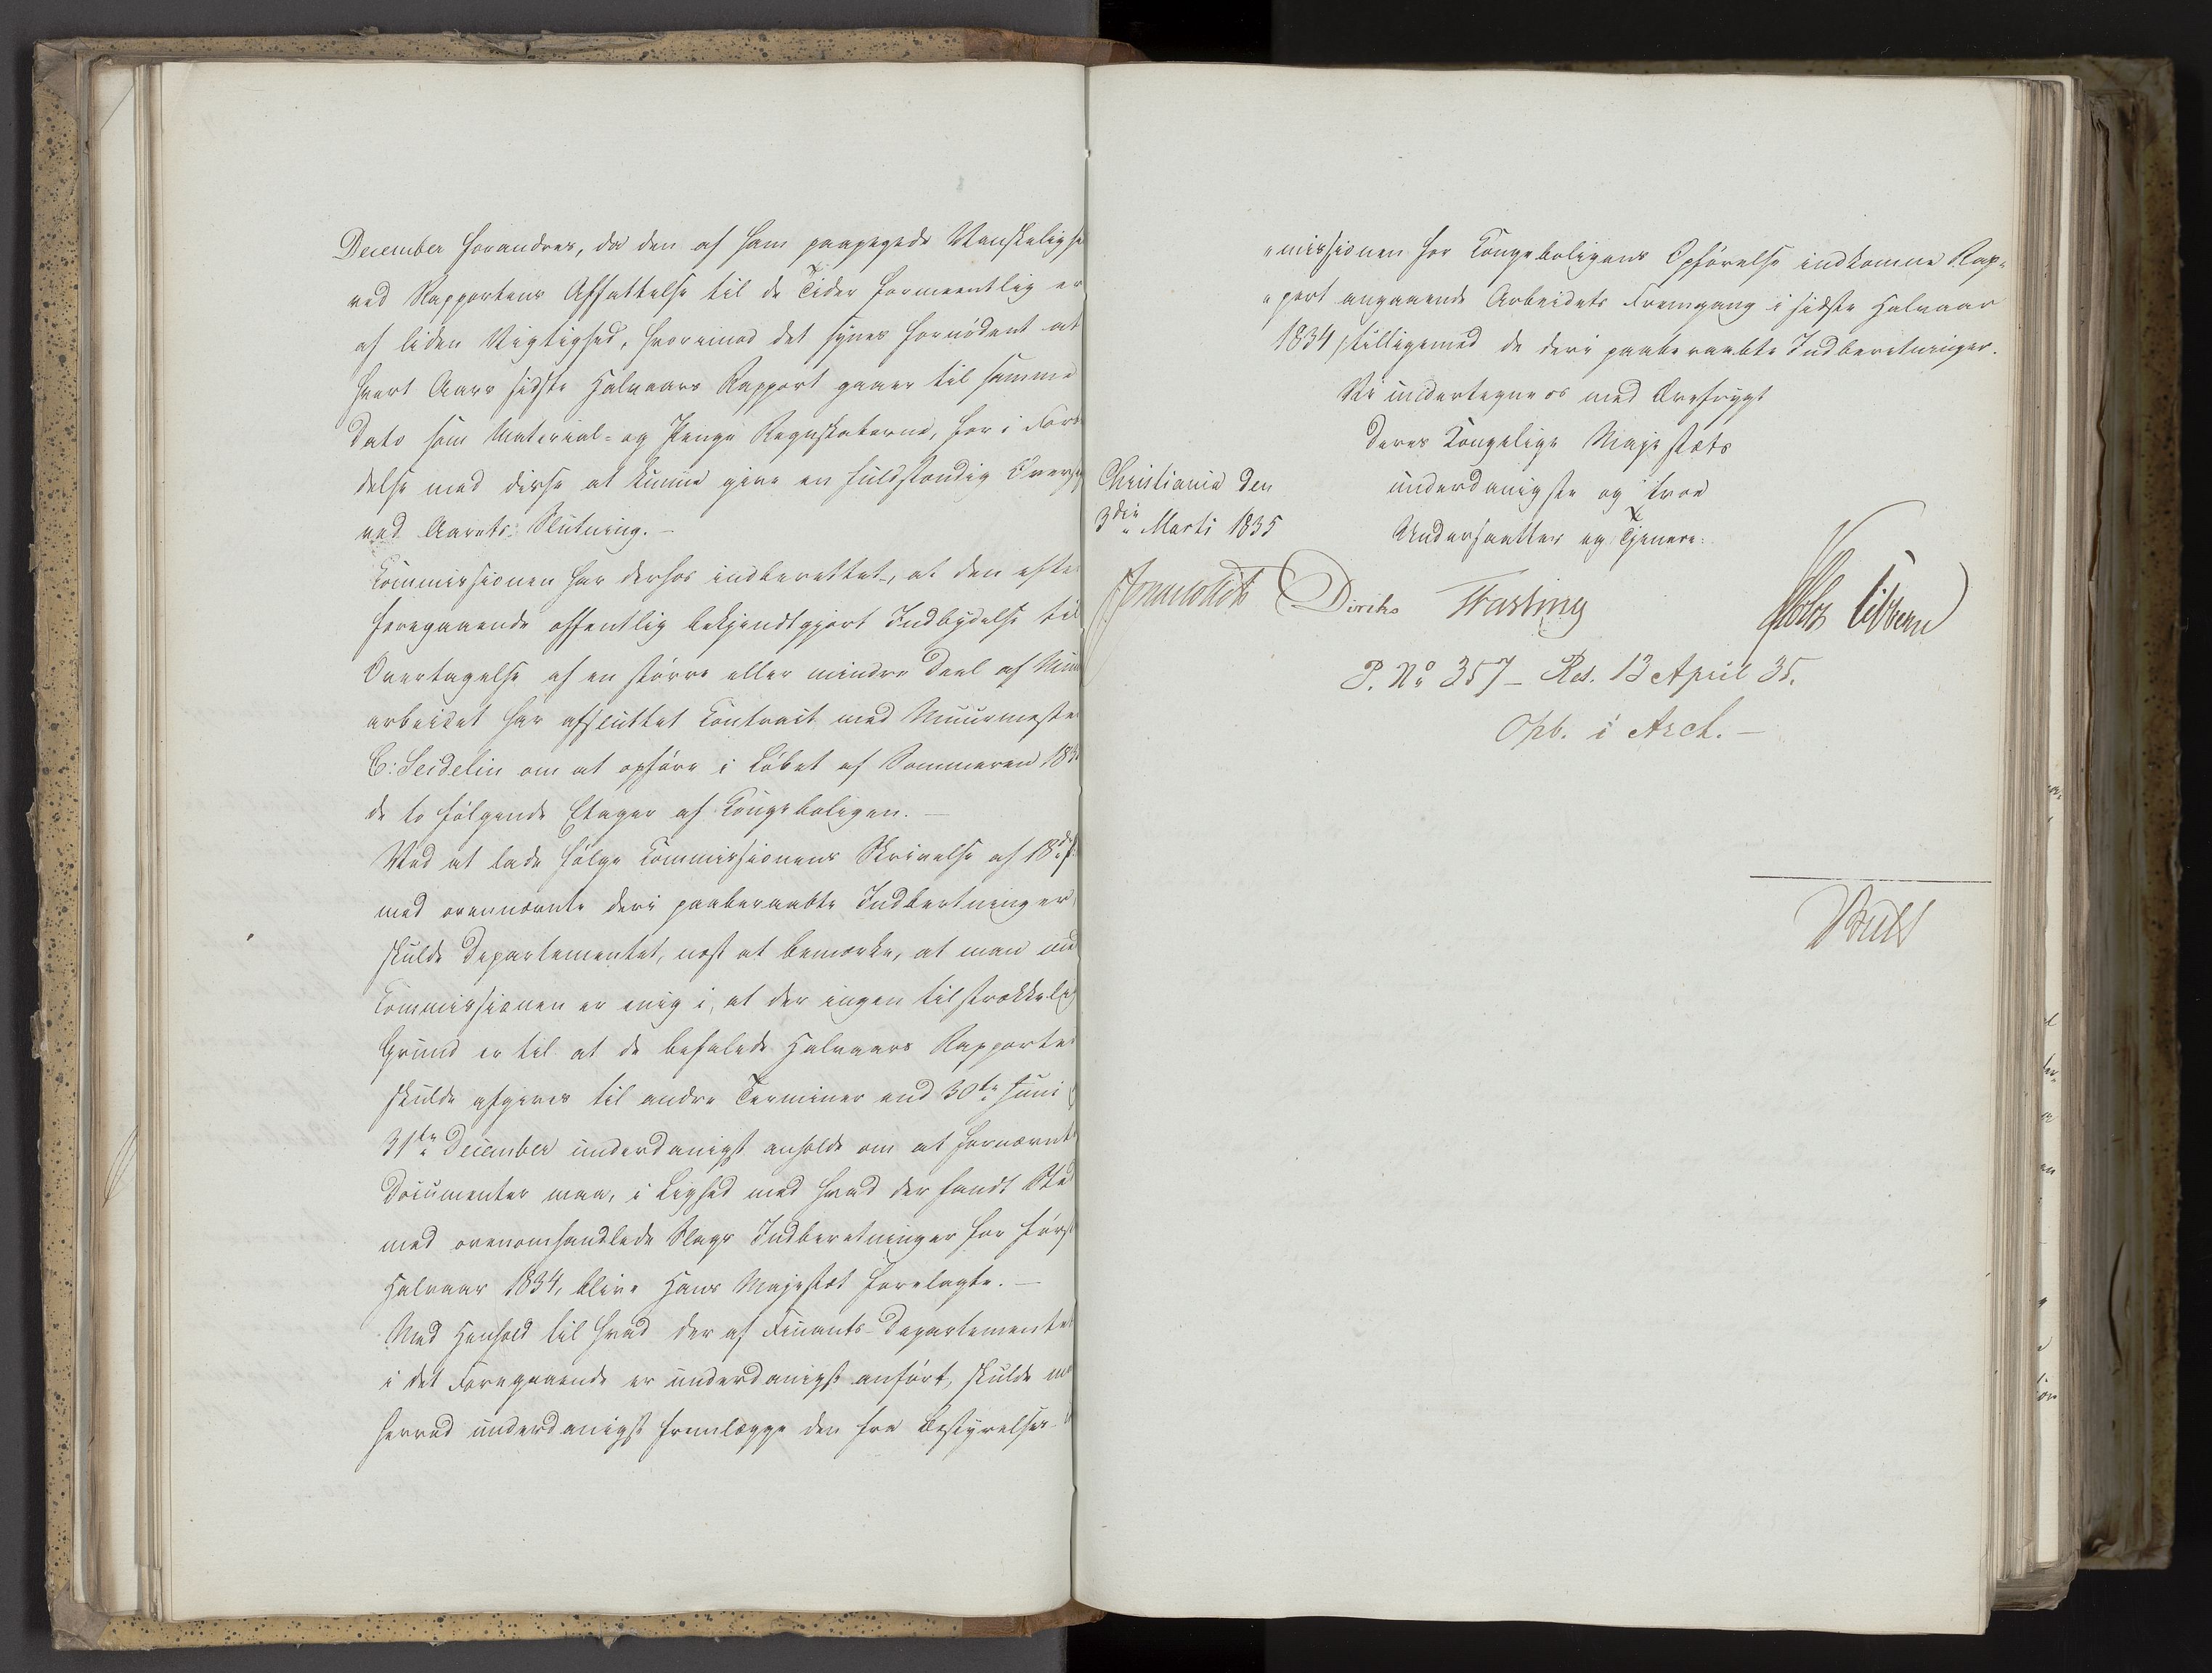 December forandres, da den af ham paapegede Vanskelighe
ved Rapportens Affattelse til de Tider formeentlig er
af liden Vigtighed, hvorimod det synes fornødent at
hvert Aars sidste Halvaars Rapport gaaer til samme
Dato som Material- og Penge Regnskaberne, for i For
delse med disse at kunne give en fuldstændig Oversig
ved Aarets Slutning. -
Kommissionen har derhos indberettet, at den efter
foregaaende offentlig bekjendtgjort Indbydelse til
Overtagelse af en større eller mindre Deel af Muur
arbeidet har afsluttet Contract med Muurmester
C: Seidelin om at opføre i Løbet af Sommeren 183
de to følgende Etager af Kongeboligen. -
Ved at lade følge Commissionens Skrivelse af 18de f:
med ovennævnte deri paaberaabte Indberetninger
skulde Departementet, næst at bemærke, at man med
Commissionen er enig i, at der ingen tilstrækkelig
Grund er til at de befalede Halvaars Rapporter
skulde afgives til andre Terminer end 30te Juni
31te December underdanigst anholde om at fornævnte
Documenter maa, i Lighed med hvad der fandt Sted
med ovenomhandlede Slags Indberetninger for første
Halvaar 1834, blive Hans Majestæt forelagte. -
Med Henhold til hvad der af Finants-Departementet
i det Foregaaende er underdanigst anført, skulde m
herved underdanigst fremlægge den fra Bestyrelses-
"missionen for Kongeboligens Opførelse indkomne Rap-
"port angaaende Arbeidets Fremgang i sidste Halvaar
1834, tilligemed de deri paaberaabte Indberetninger.
Vi undertegne os med Ærefrygt
Deres Kongelige Majestæts
underdanigste og troe
Undersaatter og Tjenere.
Christiania den
3die Marts 1835
Diriks Fasting
P. No 357 - Res. 13 April 35.
Opb. i Arch. -
Bull